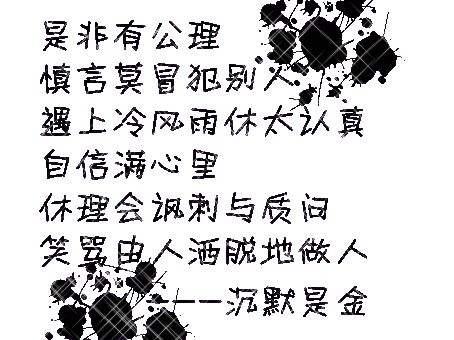 是非有公理
慎言莫冒犯别人
遇上冷风雨休太认真
自信满心里
休理会讽刺与质问
笑骂由人洒脱地做人
——沉默是金